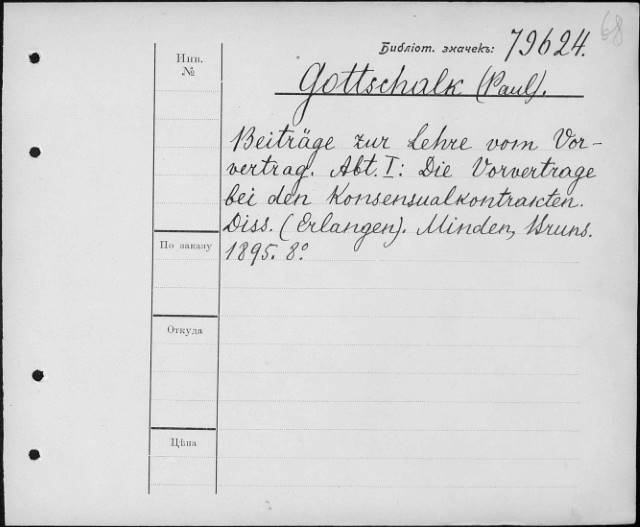 68
Библіот. значекъ: 79624.
Инв.
№
Gottschalk (Paul).
Beiträge zur Lehre vom Vor-
vertrag. Abt. I: Die Vorvertrage
bei den Konsensualkontrakten.
Diss. (Erlangen). Minden, Bruns.
1895. 8º
По заказу
Откуда
Цѣна